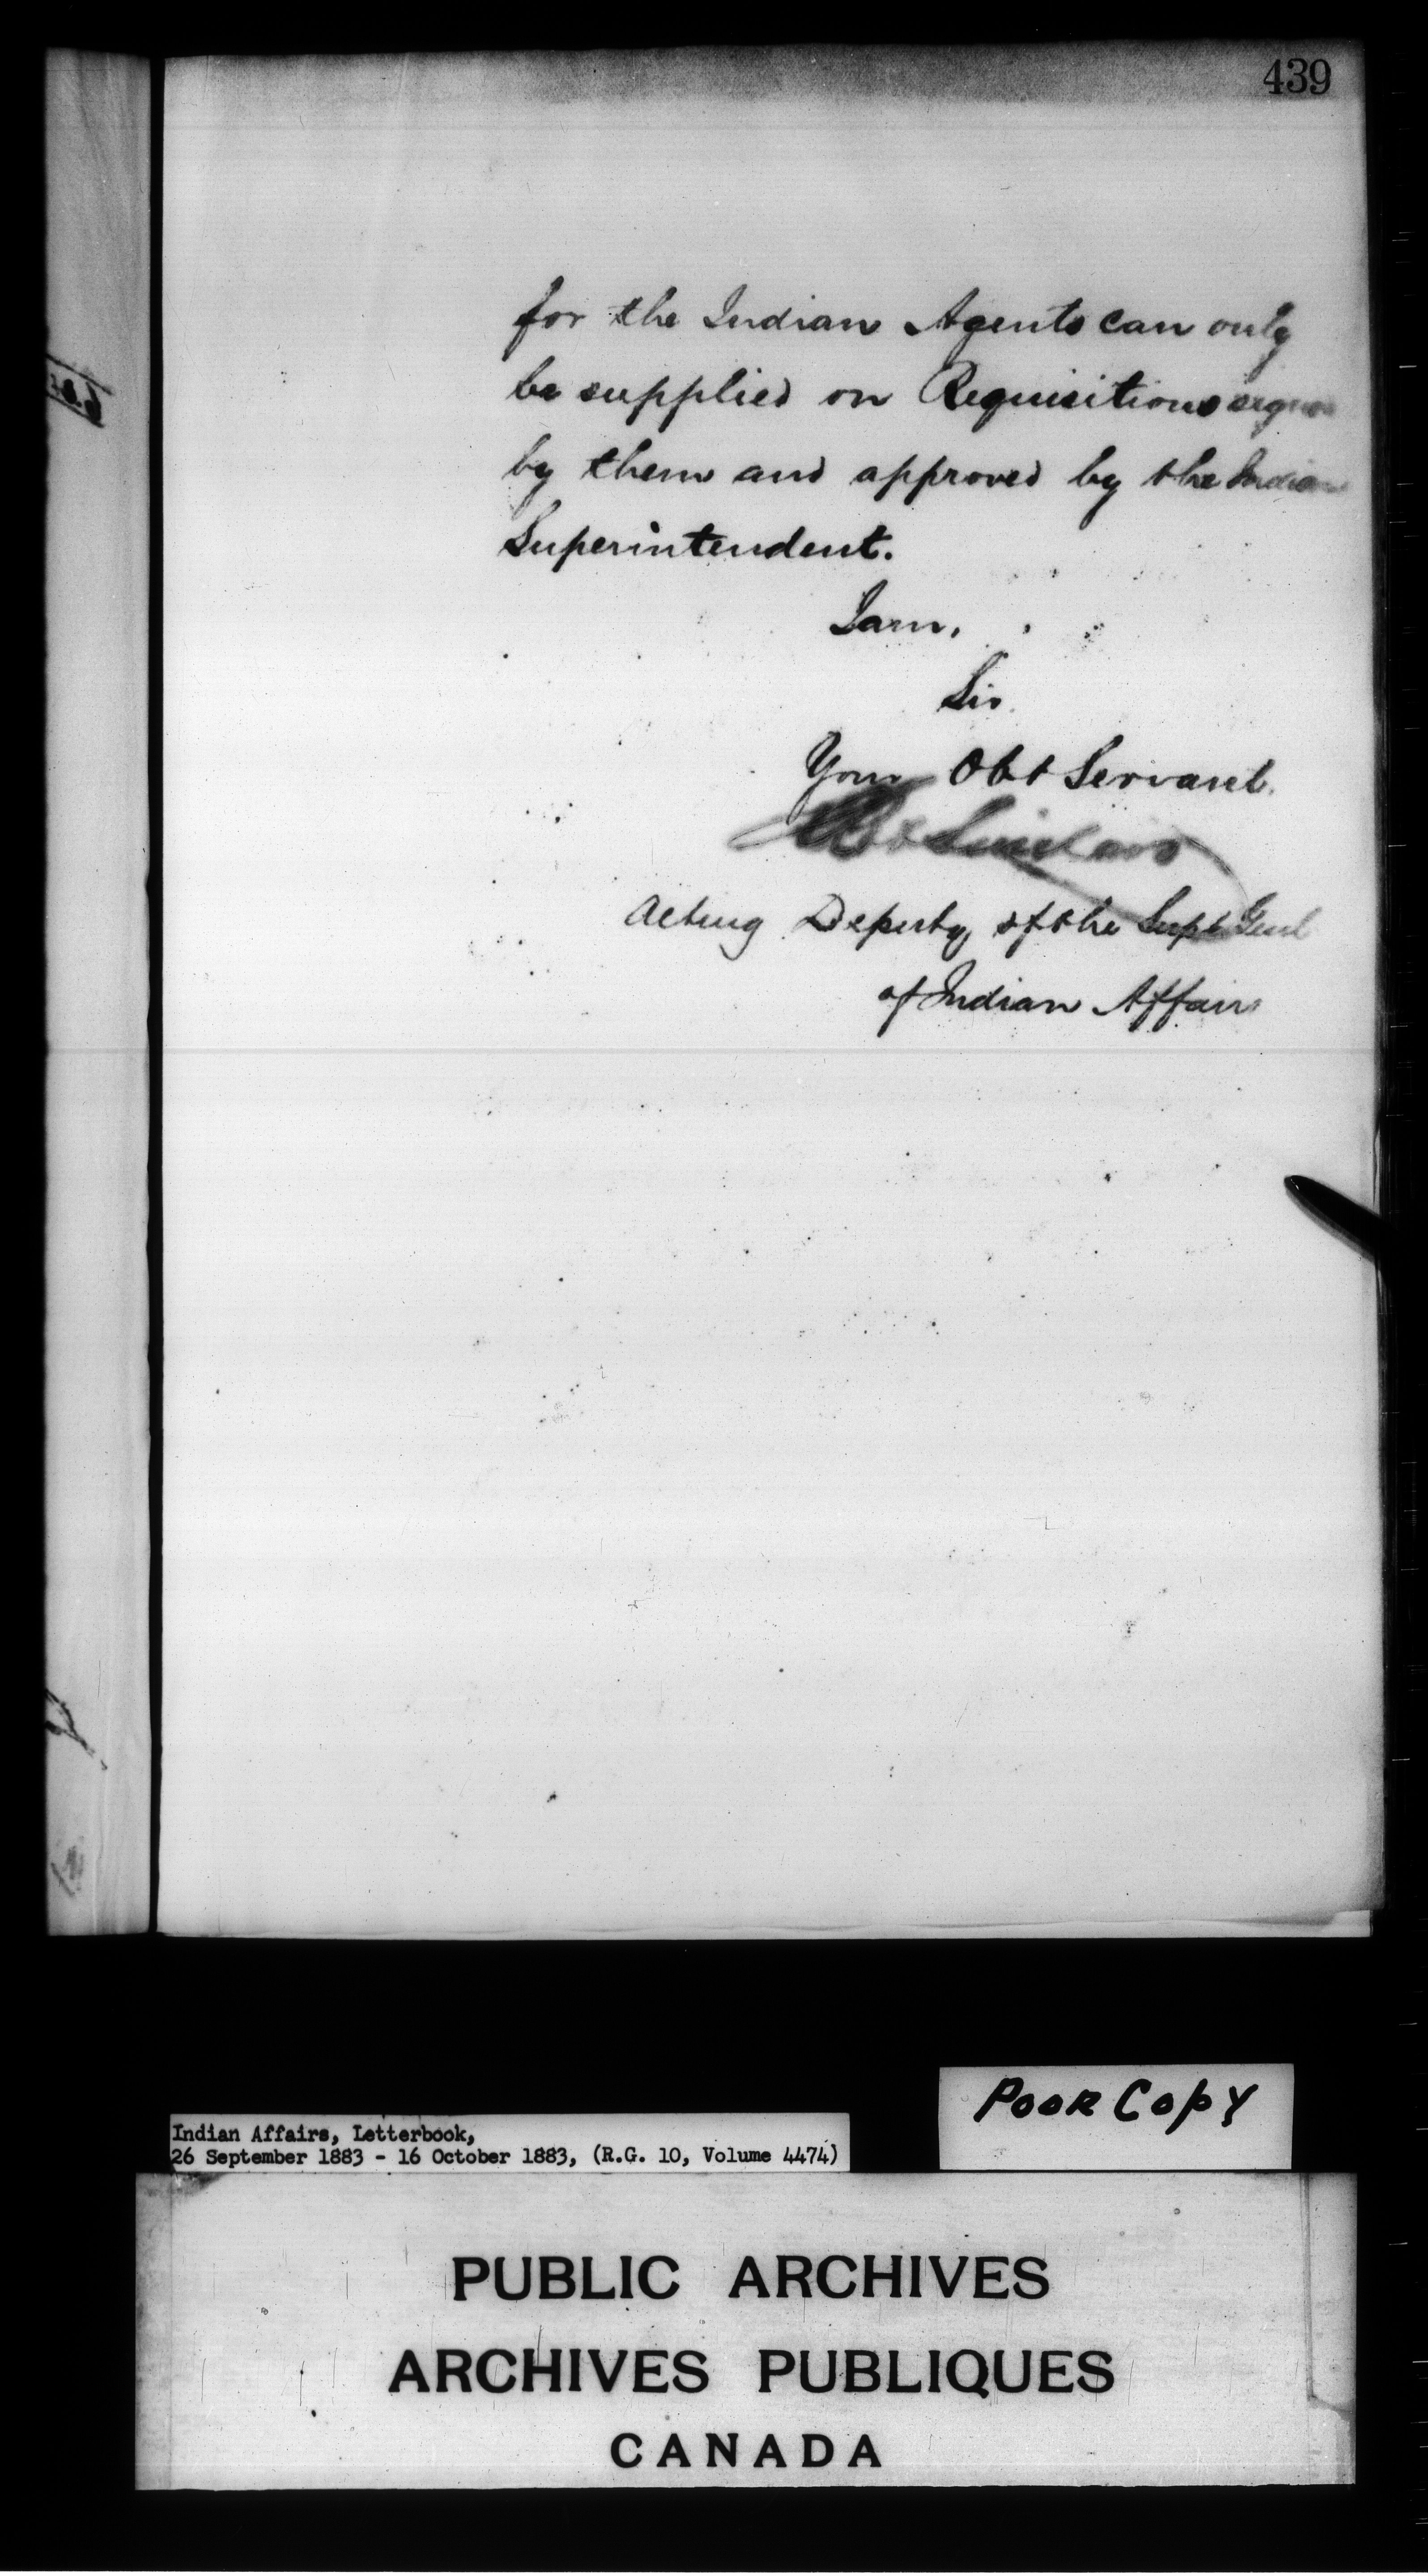 439
for the Indian Agents can only
be supplied on Requisitions signed
by them and approved by the Indian
Superintendent.
I am,
Sir
Your Obt Servant.
Sinclair
Acting Deputy of the Supt Genl
of Indian Affairs
Poor Copy
Indian Affairs, Letterbook,
26 September 1883 - 16 October 1883, (R.G. 10, Volume 4474)
PUBLIC ARCHIVES
ARCHIVES PUBLIQUES
CANADA